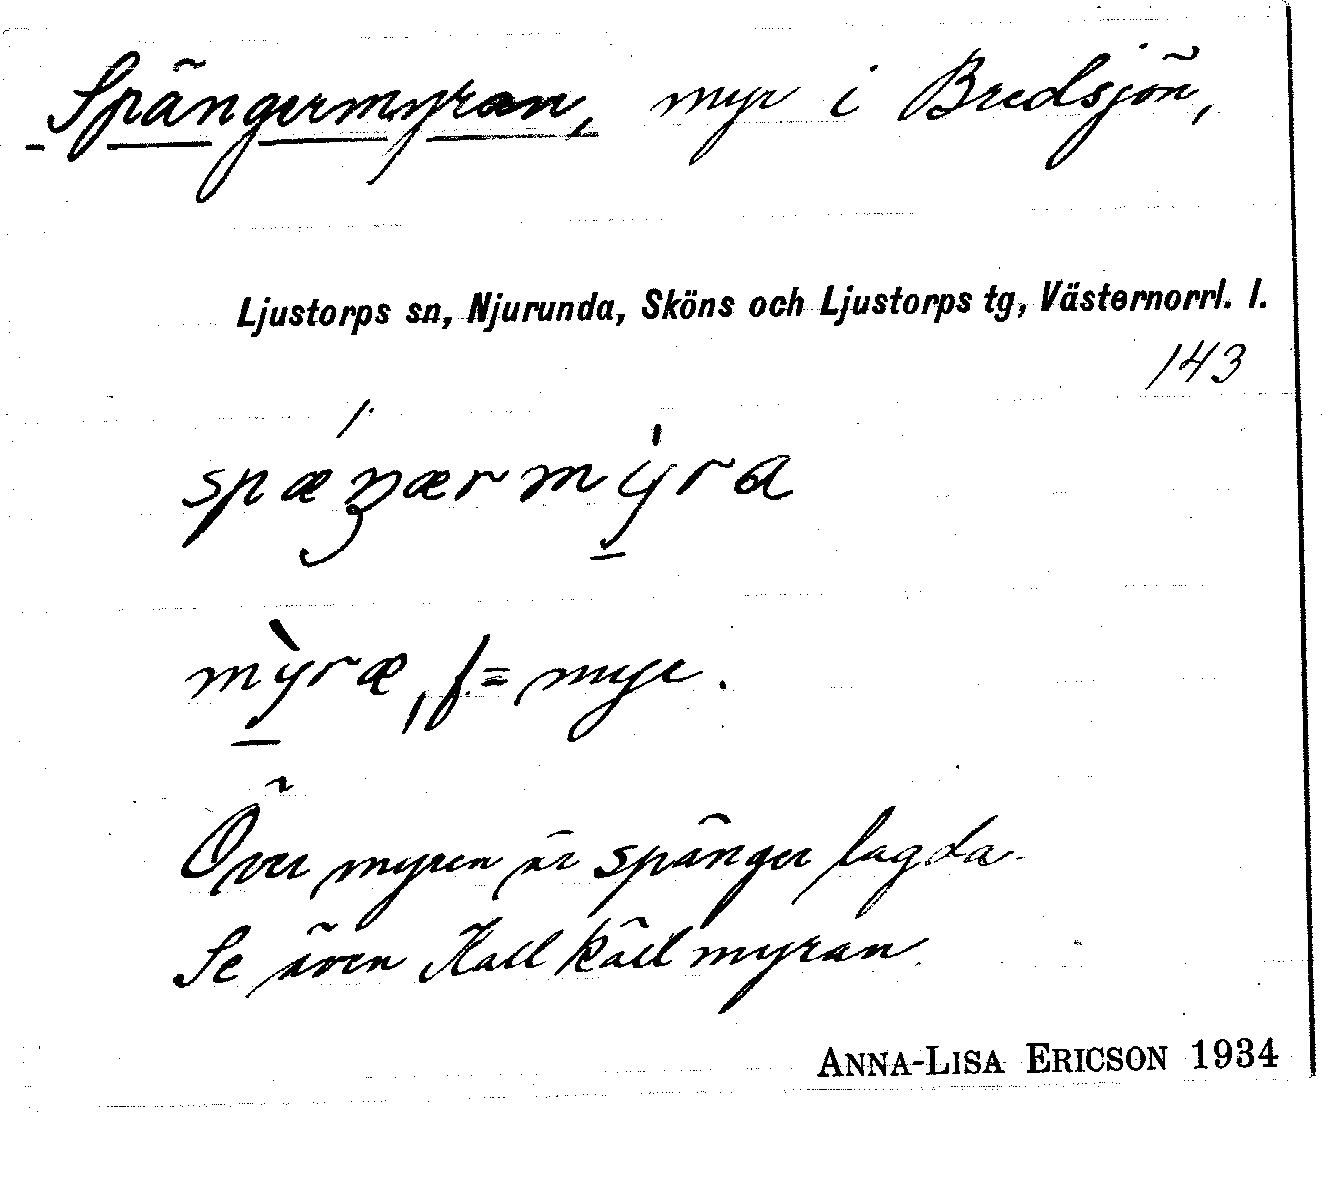 Spängermyran, myr i Bredsjön,
Ljustorps sn, Njurunda, Sköns och Ljustorps tg, Västernorrl. l.
143
spǽŋærmỳra
mỳræ, f = myr.
Över myren är spänger lagda
Se även Kallkällmyran
ANNA-LISA ERICSON 1934